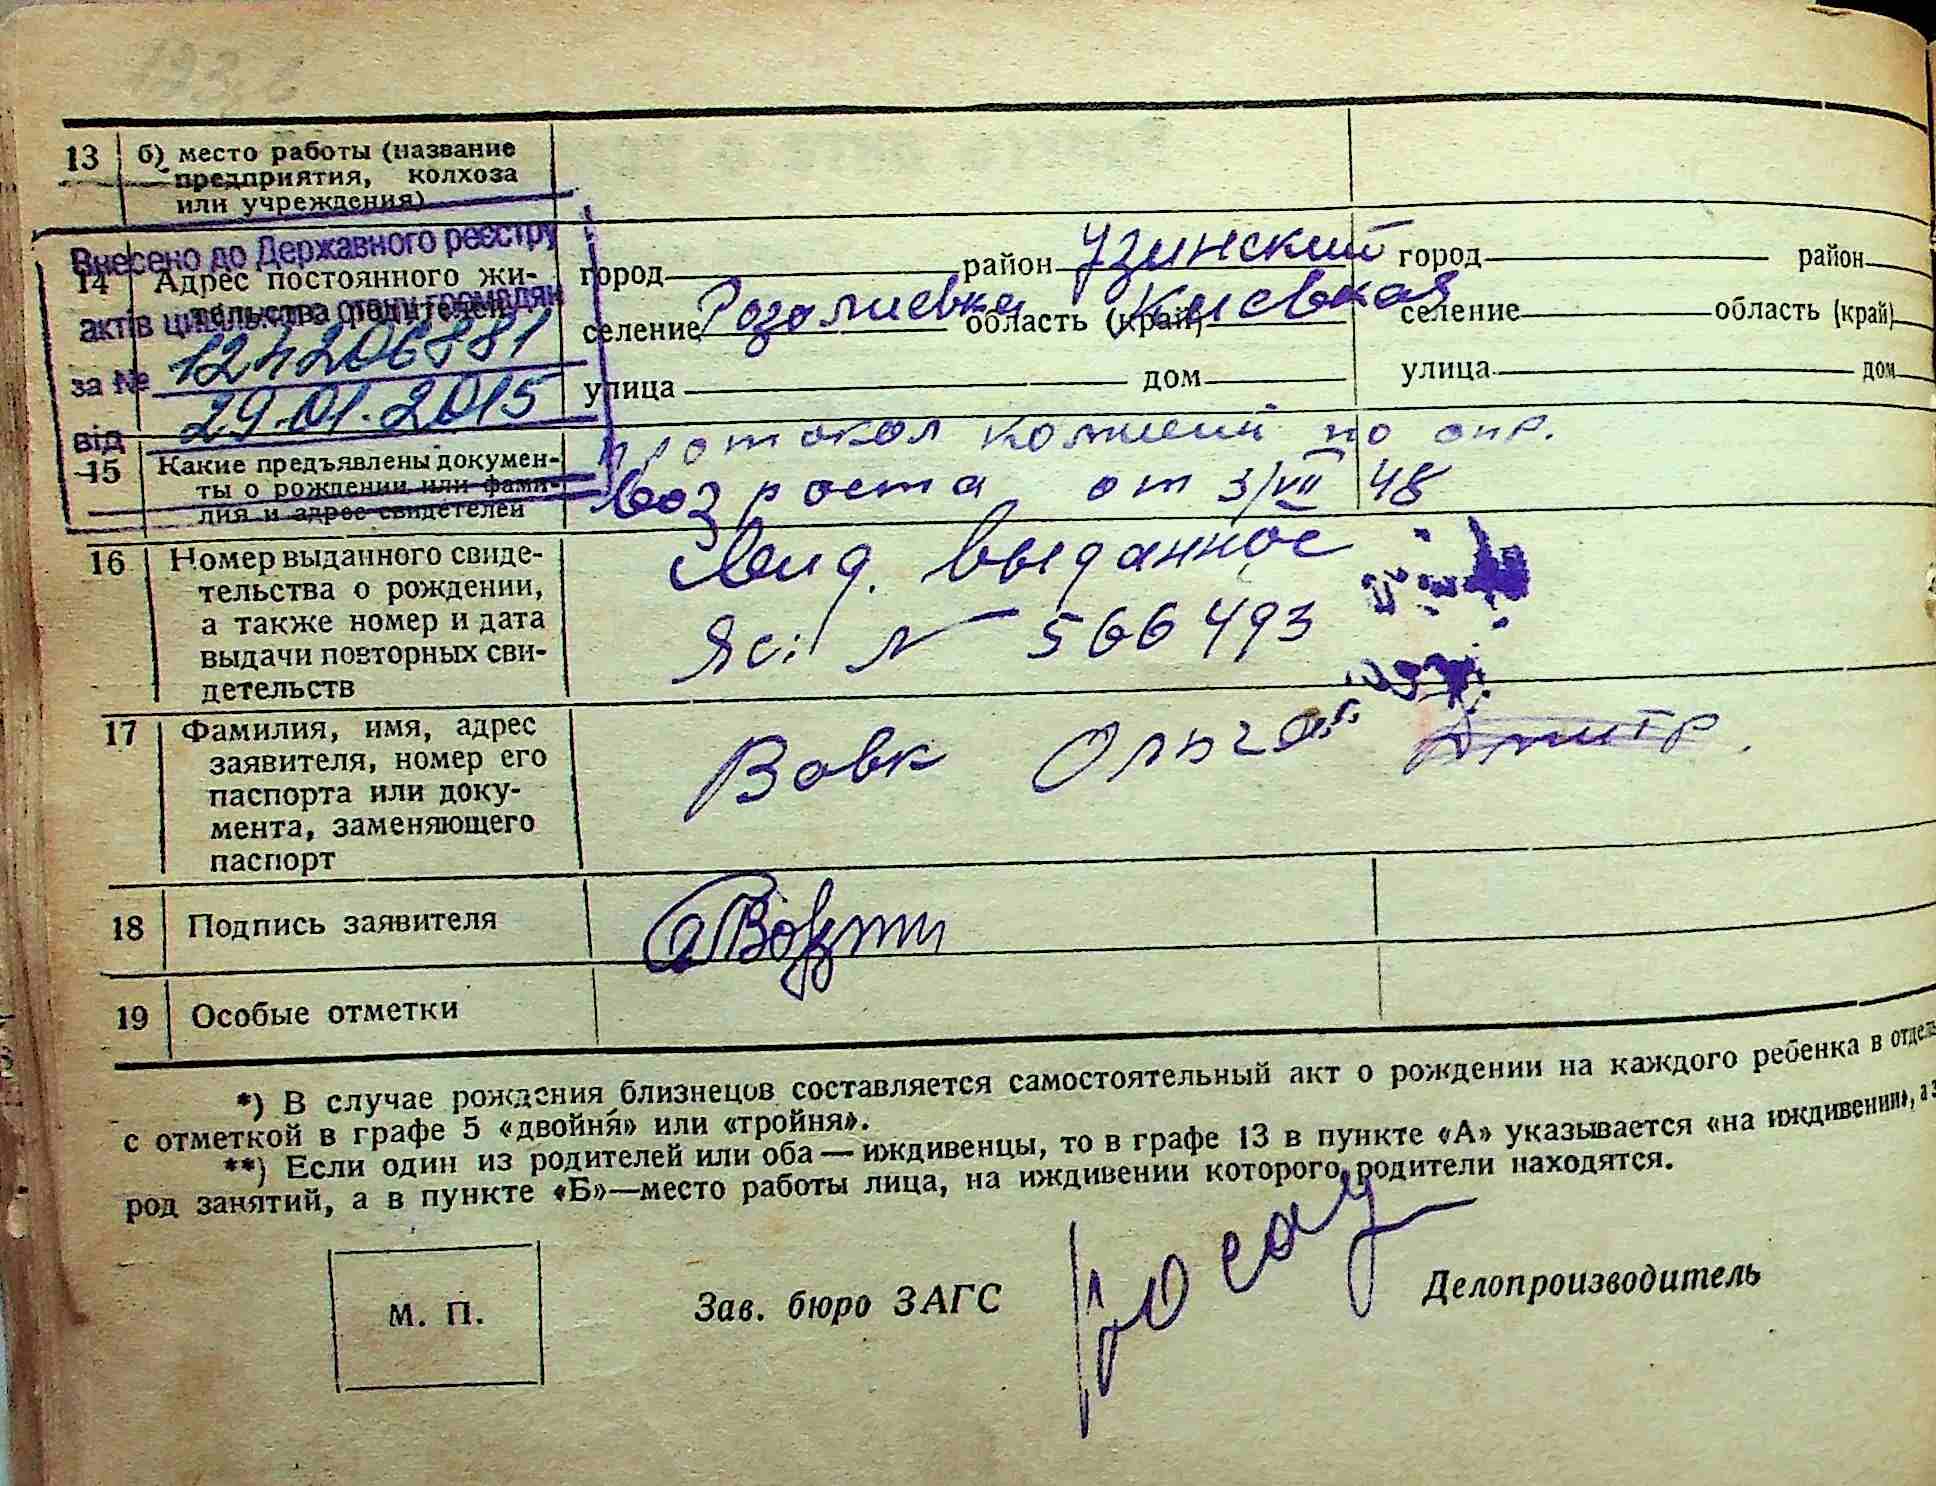 13 б) место работы (название
предприятия, колхоза
или учреждения)
Внесено до Державного реєстру
актів цивільного стану громадян
за № 12420688
від 29.01.2015
14 Адрес постоянного жи-
тельства родителей
город район Узинский
селение Розалиевка область (край) Киевская
улица дом
город район
селение область (край)
улица дом
15 Какие предъявлены докумен-
ты о рождении или фами-
лия и адрес свидетелей
протокол комиссий по опр.
возроста от 3/VII 48
16 Номер выданного свиде-
тельства о рождении,
а также номер и дата
выдачи повторных сви-
детельств
Свид. выданное
№ 566493
17 Фамилия, имя, адрес
заявителя, номер его
паспорта или доку-
мента, заменяющего
паспорт
Вовк Ольга Дмитр.
18 Подпись заявителя
19 Особые отметки
*) В случае рождения близнецов составляется самостоятельный акт о рождении на каждого ребенка в отдель
с отметкой в графе 5 «двойня» или «тройня».
**) Если один из родителей или оба — иждивенцы, то в графе 13 в пункте «А» указывается «на иждивении», а
род занятий, а в пункте «Б»—место работы лица, на иждивении которого родители находятся.
М. П.
Зав. бюро ЗАГС
Делопроизводитель